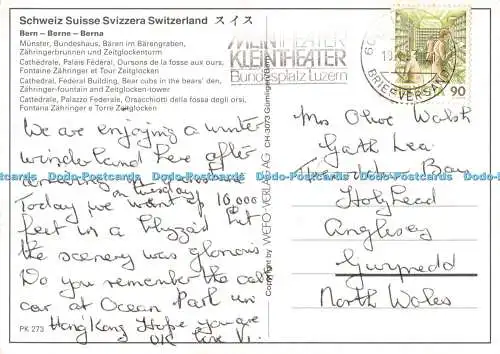 Schweiz Suisse Svizzera Switzerland スイス
Bern – Berne – Berna
Münster, Bundeshaus, Bären im Bärengraben,
Zähringerbrunnen und Zeitglockenturm
Cathedrale, Palais Fédéral, Oursons de la fosse aux ours,
Fontaine Zähringen et Tour Zeitglocken
Cathedral, Federal Building, Bear cubs in the bears' den,
Zähringer-fountain and Zeitglocken-tower
Cathedrale, Palazzo Federale, Orsacchiotti della fossa degli orsi,
Fontana Zähringen e Torre Zeitglocken
MEIN THEATER
KLEINTHEATER
Bundesplatz Luzern
BRIEFVERSAND
90
We are enjoying a winter
wonderland here after
arriving on Tuesday
Today we went up 10,000
feet in a blizzard but
the scenery was glorious
Do you remember the cable
car at Ocean Park in
Hong Kong Hope you are
OK love Vi.
PK 273
Copyright by WEFO-VERLAG AG CH-3073 Gümligen/Bern
Mrs Olive Walsh
Garth Lea
Bay
Holyhead
Anglesey
Gwynedd
North Wales
Dodo-Postcards Dodo-Postcards Dodo-Postcards Dodo-Postcards